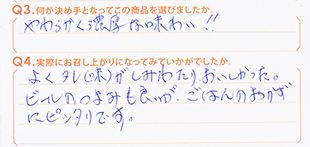 Q3.何が決め手となってこの商品を選びましたか。
やわらかく濃厚な味わい!!
Q4.実際にお召し上がりになってみていかがでしたか。
よくタレ(味)がしみわたりおいしかった。
ビールのつまみも良いが、ごはんのおかず
にピッタリです。